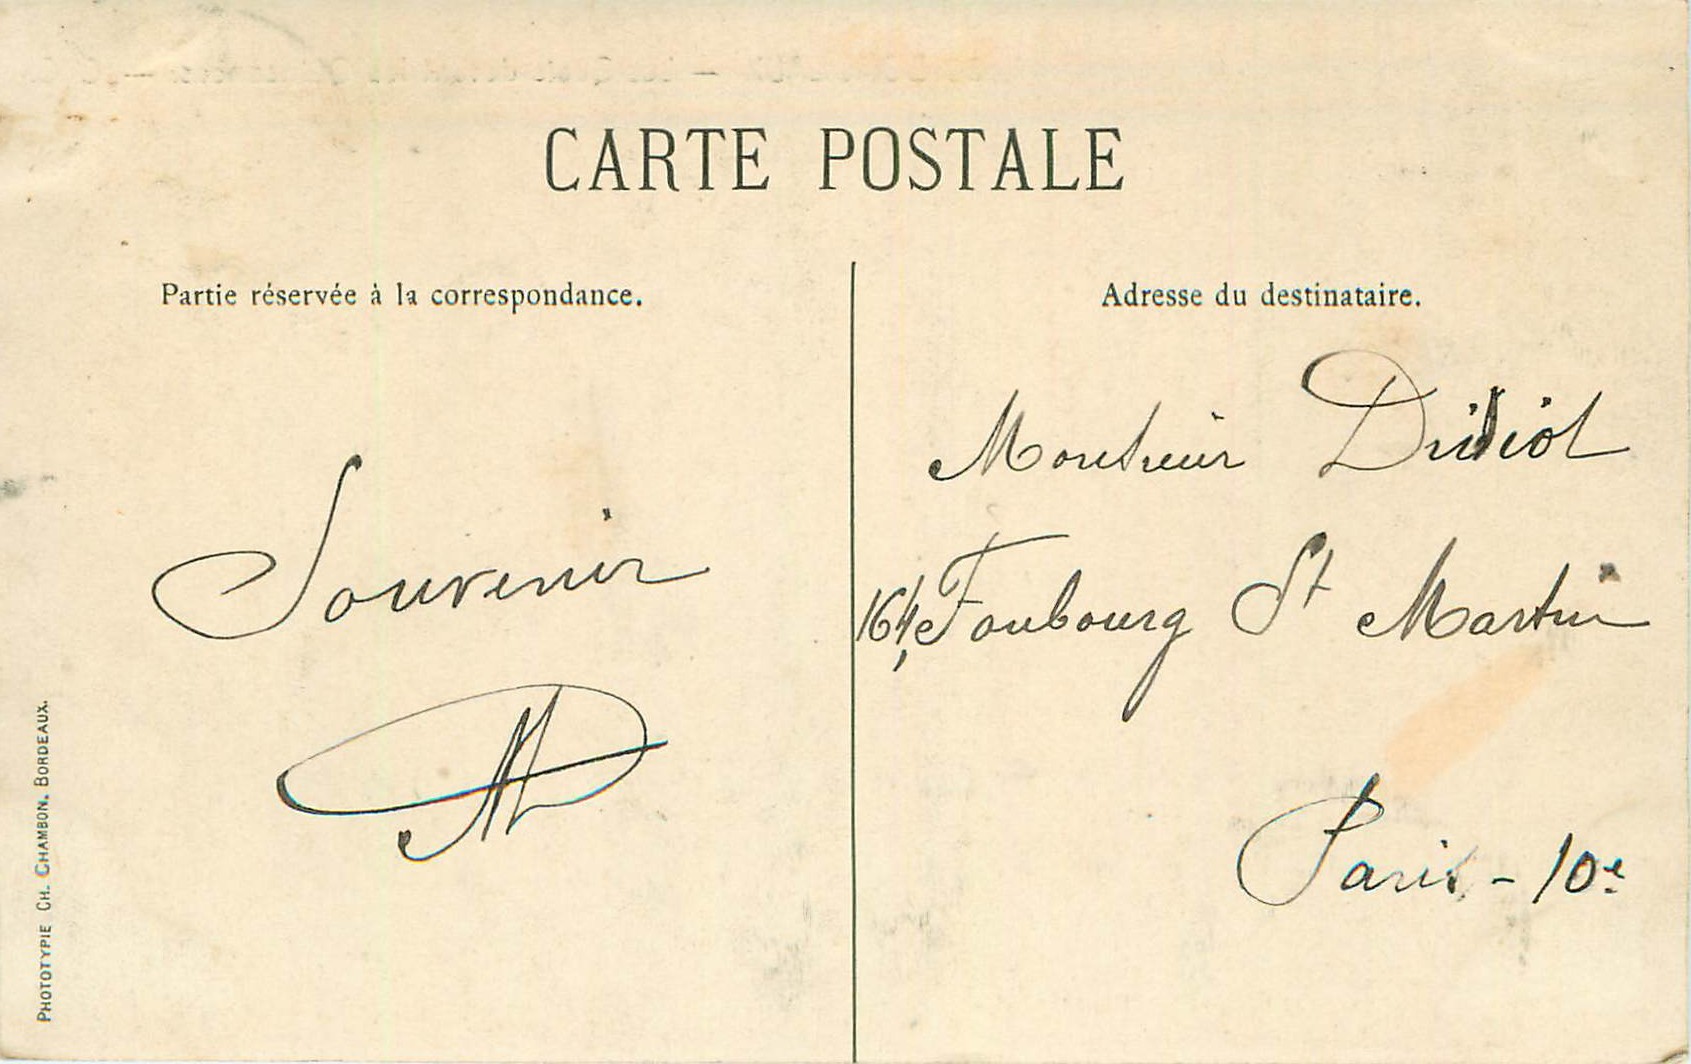 CARTE POSTALE
Partie réservée à la correspondance.
Souvenir
PHOTOTYPIE CH. CHAMBON. BORDEAUX.
Adresse du destinataire.
Monsieur
164, Faubourg St Martin
Paris - 10e